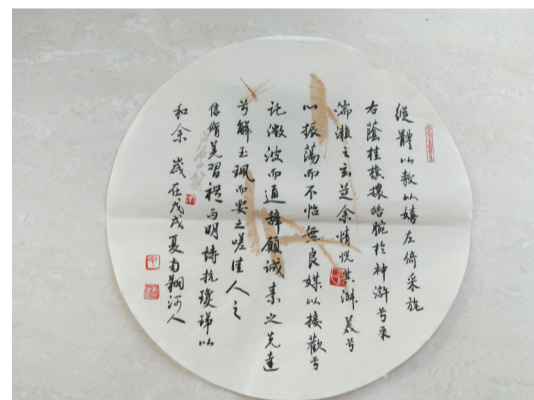 縱體以敖以嬉左倚采旄
右蔭桂旗攘皓腕於神滸兮采
湍瀨之玄芝余情悅其淑美兮
心振蕩而不怡無良媒以接歡兮
託微波而通辭願誠素之先達
兮解玉珮而要之嗟佳人之
信脩羌習禮而明詩抗瓊珶以
和余 歲在戊戌夏南翔河人